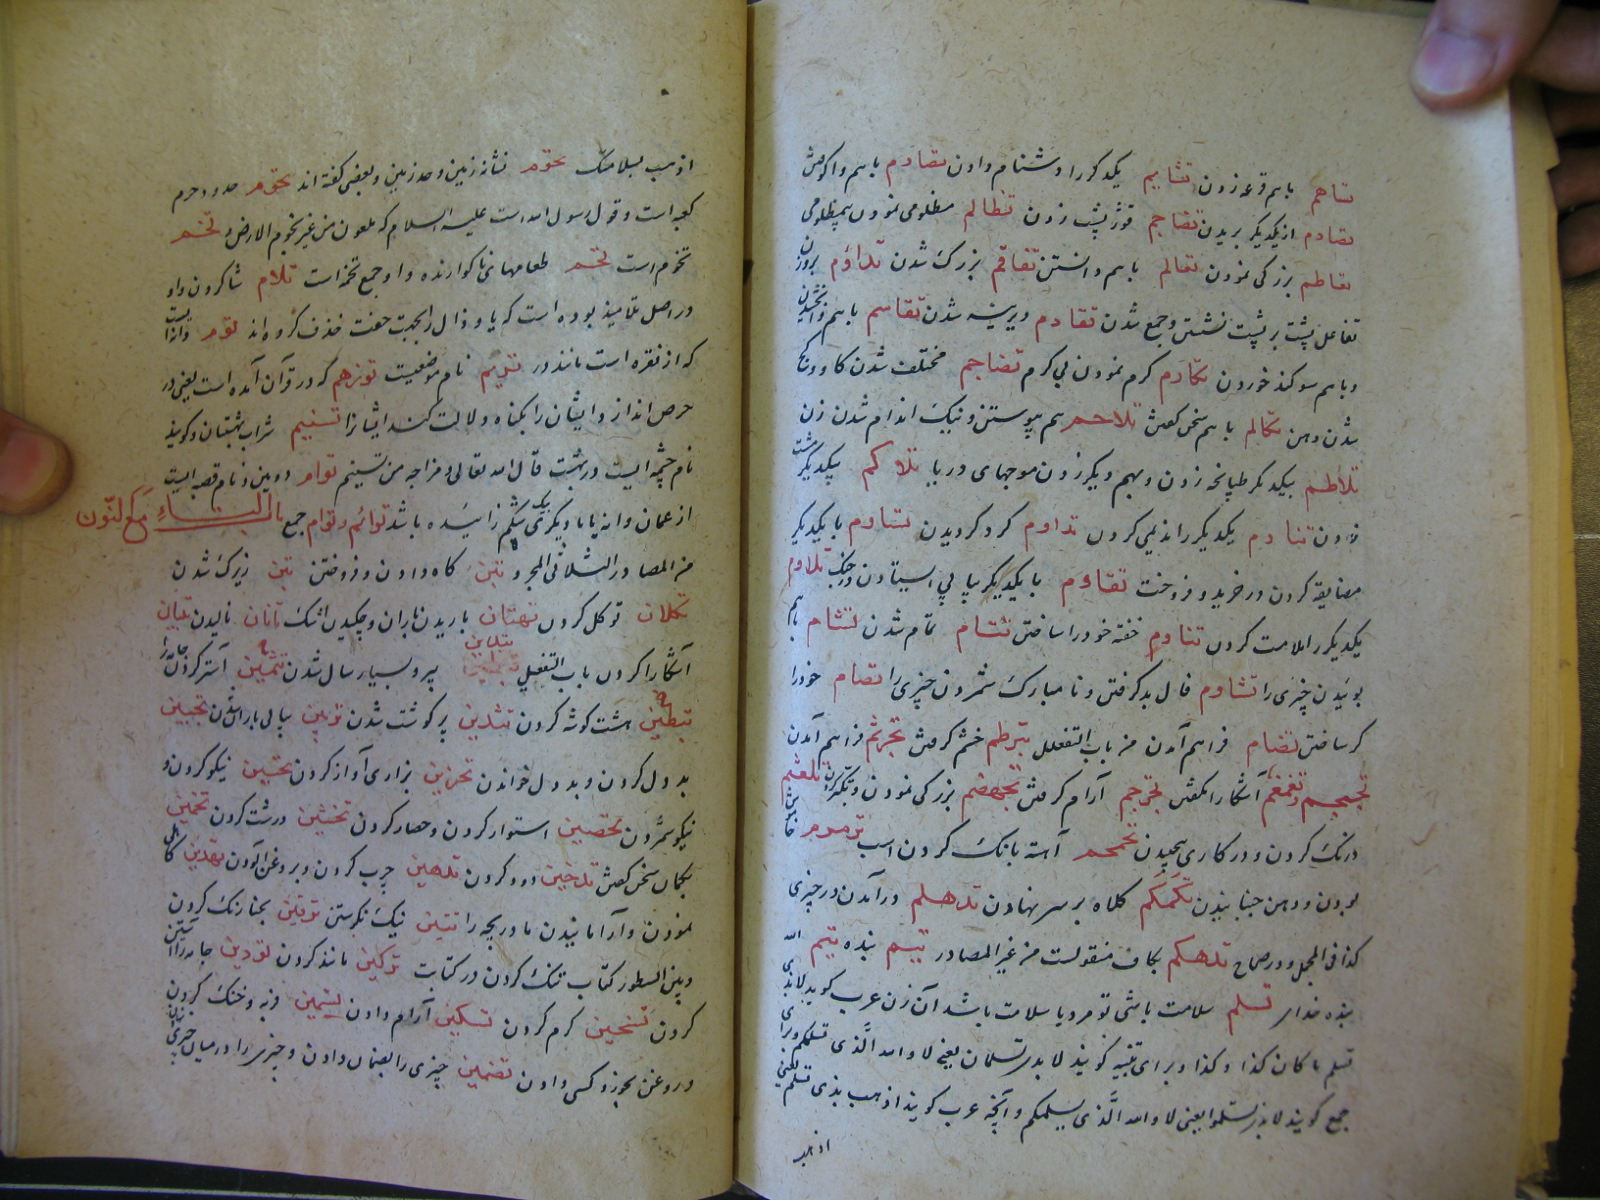 تساهم باهم قرعه زدن تشایم یکدیگر را دشنام دادن تصادم باهم واکوفتن
تصارم از یکدیگر بریدن تفاجم قوز پشت زدن تظالم مظلومی نمودن بی مظلومی
تعاظم بزرگی نمودن تعالم باهم دانستن تفاقم بزرگ شدن تداؤم بروزن
تفاعل پشت بر پشت نشستن و جمع شدن تقادم دیرینه شدن تقاسم باهم وابخشیدن
و باهم سوگند خوردن تکارم کرم نمودن بی کرم تضاجم مختلف شدن کار و کج
شدن دهن تکالم باهم سخن گفتن تلاحم بهم پیوستن و نیک اندام شدن زن
تلاطم بیکدیگر طپانچه زدن و بهم دیگر زدن موجهای دریا تلاکم بیکدیگر مشت
زدن تنادم یکدیگر را ندیمی کردن تداوم گرد گردیدن تساوم با یکدیگر
مضایقه کردن در خرید و فروخت تقاوم با یکدیگر بپای ایستادن در جنگ تلاوم
یکدیگر را ملامت کردن تناوم خفته خود را ساختن تتام تمام شدن تشام باهم
بوئیدن چیزی را تشاوم فال بد گرفتن و نامبارک شمردن چیزی را تصام خود را
کر ساختن تضام فراهم آمدن من باب التفعلل تبرطم خشم گرفتن تجرثم فراهم آمدن
تجمجم و تغمغم آشکارا نگفتن تجرجم آرام گرفتن تجهضم بزرگی نمودن و تکبر کردن تلعثم
درنگ کردن و در کاری پیچیدن تحمحم آهسته بانگ کردن اسپ ترمرم خاموش
بودن و دهن جنبانیدن تکمکم کلاه بر سر نهادن تدهلم درآمدن در چیزی
کذا فی المجمل و در صحاح تدهکم بکاف منقولست من غیر المصادر تیم بنده تیم الله
بنده خدا تسلم سلامت باشی تو مرد یا سلامت باشد آن زن عرب گوید لا بذی
تسلم ما کان کذا و کذا و برای تثنیه گویند لا بذی تسلمان یعنی لا والله الذی تسلمکم و برای
جمع گویند لا بذی تسلموا یعنی لا والله الذی یسلمکم و آنچه عرب گویند اذهب بذی تسلم یعنی
اذهب
اذهب بسلامتک تخوم نشانه زمین و حد زمین و بعضی گفته اند تخوم حدود حرم
کعبه است و قول رسول الله است علیه السلام که ملعون من غیر تخوم الارض و تخم
تخوم است تخم طعامهای ناگوارنده و او جمع تخمه است تلام شاگردان و او
در اصل تلامیذ بوده است که یا و ذال را بجهت خفت حذف کرده اند توم دانه ایست
که از نقره است مانند در تریم نام موضعیست تؤزهم که در قرآن آمده است یعنی در
حرص اندازد ایشان را بگناه و دلالت کند ایشان را تسنیم شراب بهشتیان و گویند
نام چشمه ایست در بهشت قال الله تعالی و مزاجه من تسنیم توام دوبین و نام قصبه ایست
از عمان و انه یا با دیگری بیک شکم زائیده باشد توائم و توام جمع باب التاء مع النون
من المصادر الثلاثی المجرد تبن کاه دادن و فروختن تبن زیرک شدن
تکلان توکل کردن تهتان باریدن باران و چکیدن اشک تانان نالیدن تبیان
آشکارا کردن باب التفعیل تبدین پیر و بسیار سال شدن تثمین آستر کردن جامه را
تبطین هشت گوشه کردن تثدین پر گوشت شدن تزبین پیاپی باران شدن تجبین
بد دل کردن و بد دل خواندن تحزین بزاری آواز کردن تحسین نیکو کردن و
نیکو شمردن تحصین استوار کردن و حصار کردن تخشین درشت کردن تخمین
بگمان سخن گفتن تدخین دود کردن تدهین چرب کردن و بروغن آلودن تهدین
نمودن و آرامانیدن مادر بچه را تتبین نیک نگرستن ترقین بحنا رنگ کردن
و بین السطور کتاب تنگ کردن در کتابت ترکین مانند کردن تردین جامه را آستین
کردن تسخین گرم کردن تسکین آرام دادن تسمین فربه و خنک کردن
و روغن بجوز و کسی دادن تضمین چیزی را بضمان دادن و چیزی را در میان چیزی